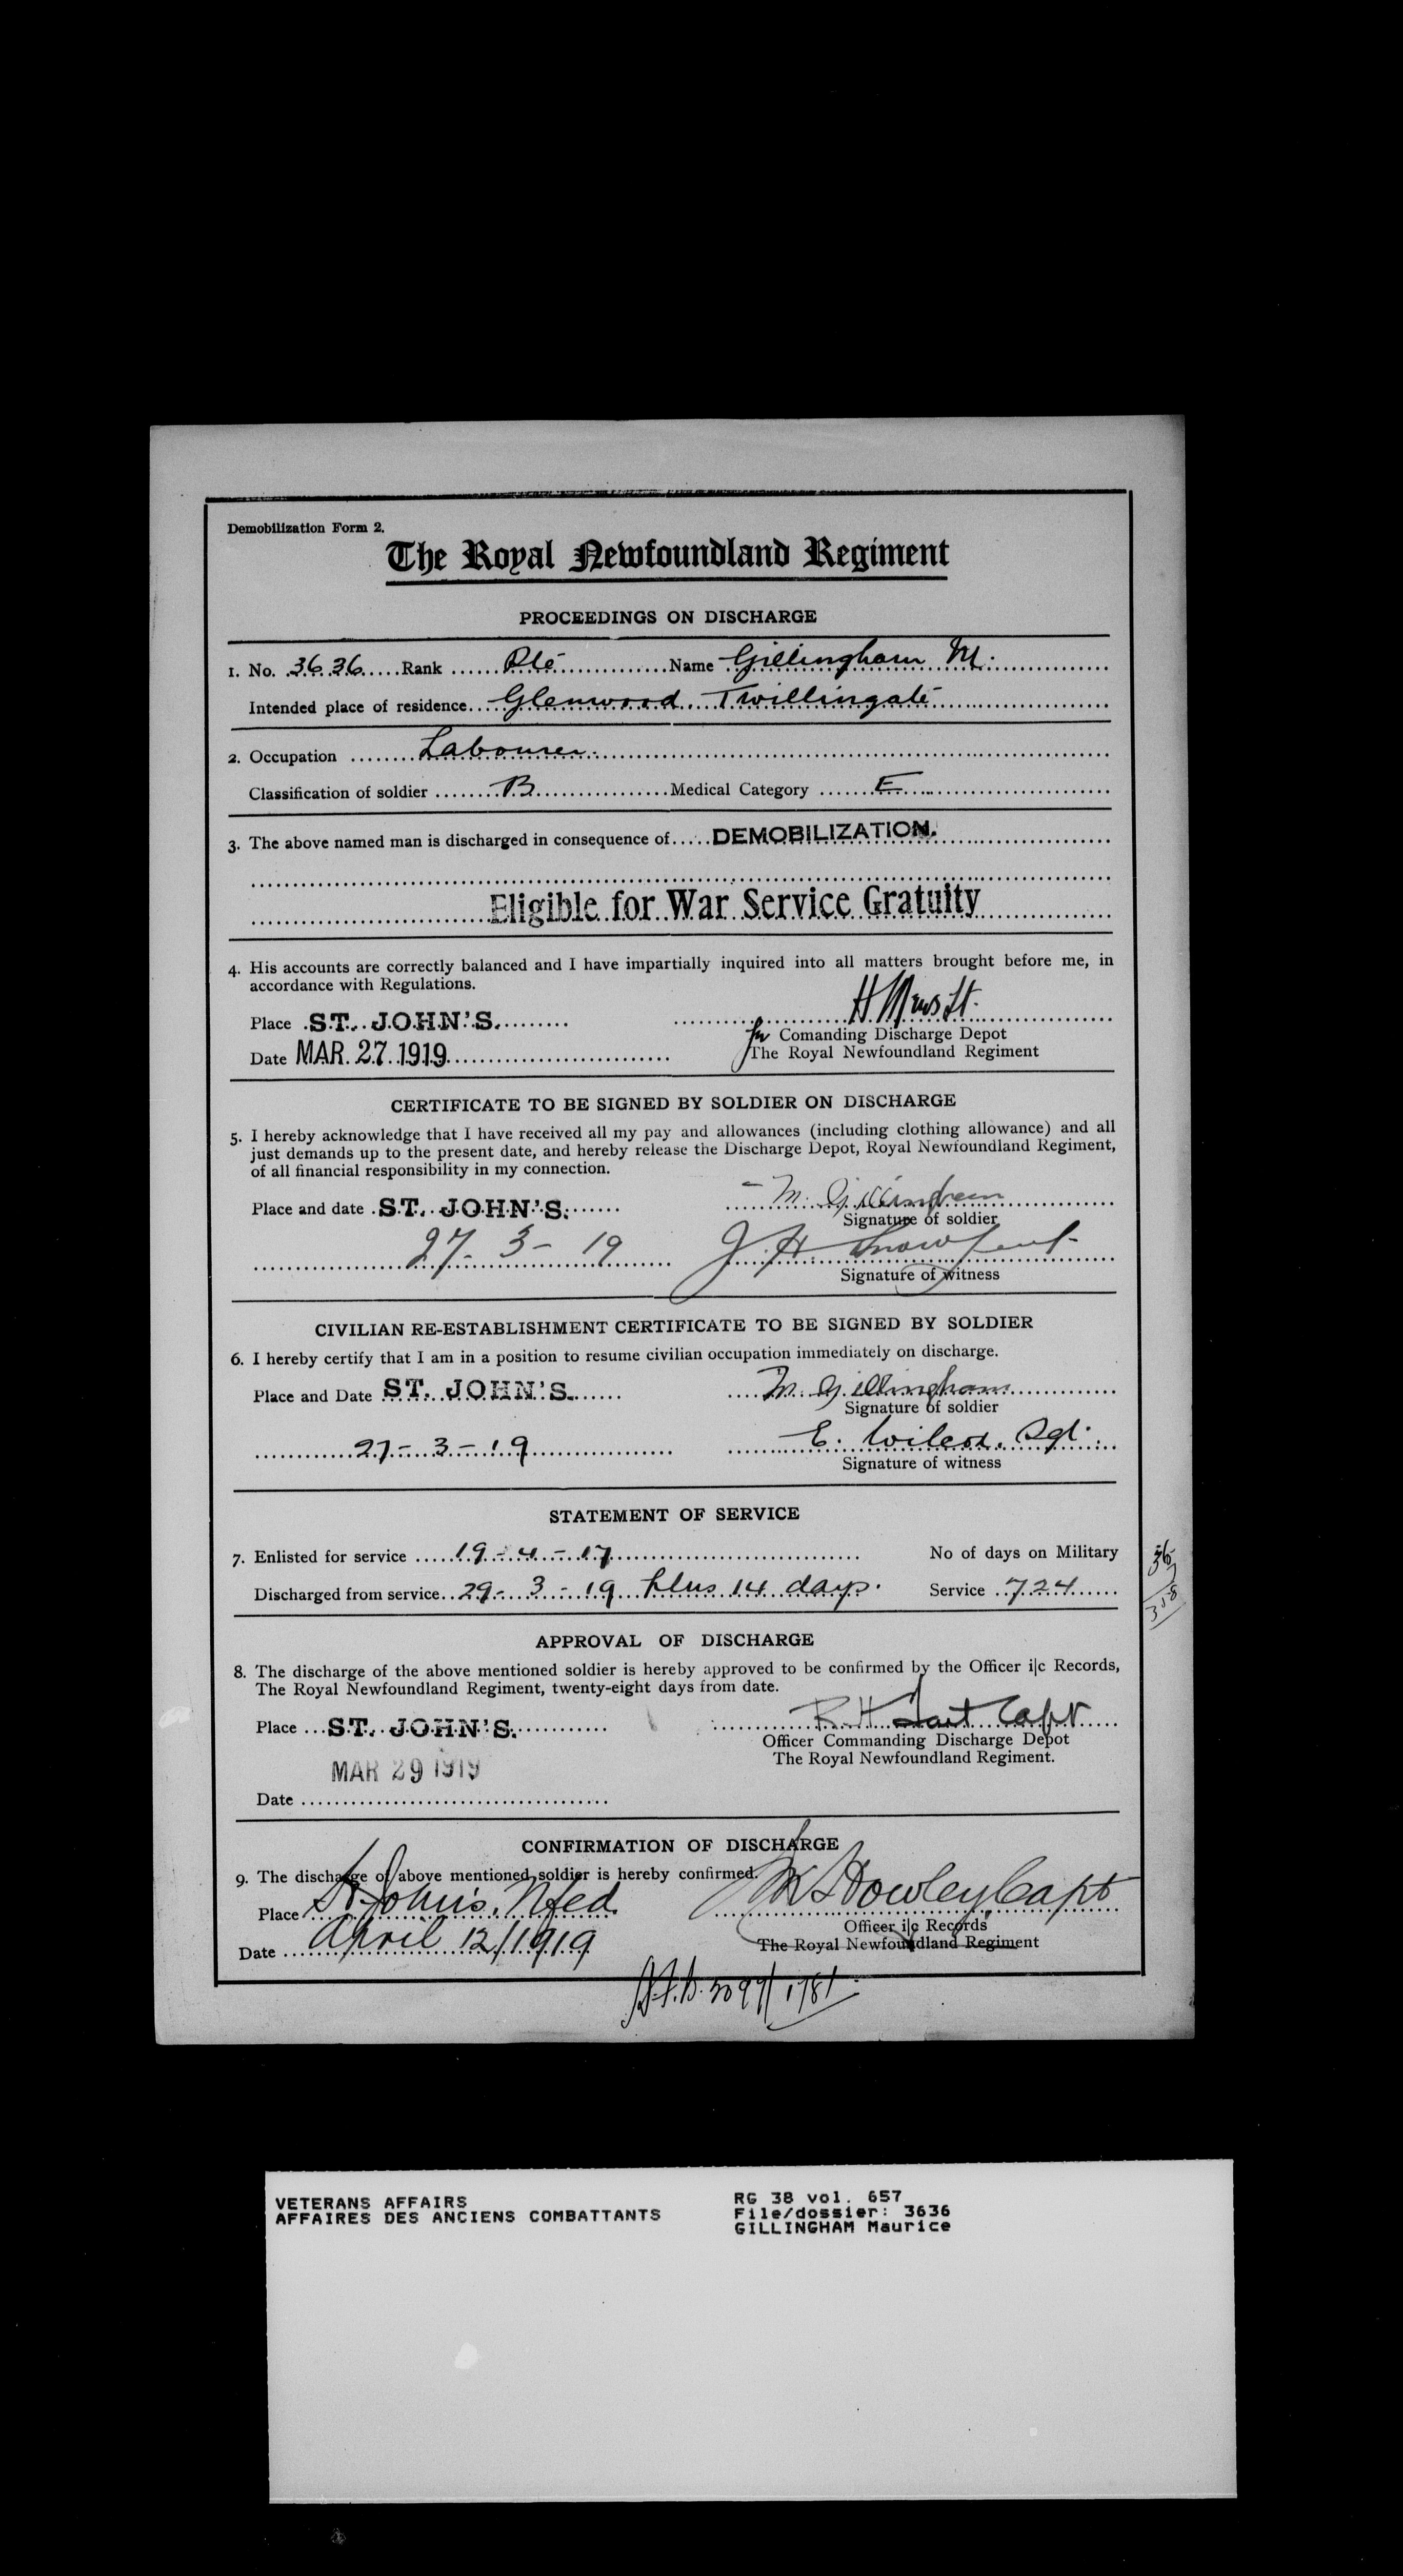 Demobilization Form 2.
The Royal Newfoundland Regiment
PROCEEDINGS ON DISCHARGE
1. No. 3636 Rank Pte Name Gillingham M.
Intended place of residence Glenwood Twillingate
2. Occupation Labourer.
Classification of soldier B Medical Category E
3. The above named man is discharged in consequence of DEMOBILIZATION.
Eligible for War Service Gratuity
4. His accounts are correctly balanced and I have impartially inquired into all matters brought before me, in
accordance with Regulations.
Place ST. JOHN'S. H Mews Lt.
for Comanding Discharge Depot
Date MAR. 27. 1919 The Royal Newfoundland Regiment
CERTIFICATE TO BE SIGNED BY SOLDIER ON DISCHARGE
5. I hereby acknowledge that I have received all my pay and allowances (including clothing allowance) and all
just demands up to the present date, and hereby release the Discharge Depot, Royal Newfoundland Regiment,
of all financial responsibility in my connection.
Place and date ST. JOHN'S. M. Gillingham
Signature of soldier
27-3-19 J. H. Snow
Signature of witness
CIVILIAN RE-ESTABLISHMENT CERTIFICATE TO BE SIGNED BY SOLDIER
6. I hereby certify that I am in a position to resume civilian occupation immediately on discharge.
Place and Date ST. JOHN'S. M. Gillingham
Signature of soldier
27-3-19 E. Wilcox. Sgt.
Signature of witness
STATEMENT OF SERVICE
7. Enlisted for service 19-4-17 No of days on Military
Discharged from service 29-3-19 Plus 14 days. Service 724
APPROVAL OF DISCHARGE
8. The discharge of the above mentioned soldier is hereby approved to be confirmed by the Officer i|c Records,
The Royal Newfoundland Regiment, twenty-eight days from date.
Place ST. JOHN'S. R H Tait Capt
Officer Commanding Discharge Depot
The Royal Newfoundland Regiment.
MAR 29 1919
Date
CONFIRMATION OF DISCHARGE
9. The discharge of above mentioned soldier is hereby confirmed.
Place St. John's, Nfld. Howley Capt
Officer i|c Records
Date April 12/1919 The Royal Newfoundland Regiment
VETERANS AFFAIRS
AFFAIRES DES ANCIENS COMBATTANTS
RG 38 vol. 657
File/dossier: 3636
GILLINGHAM Maurice